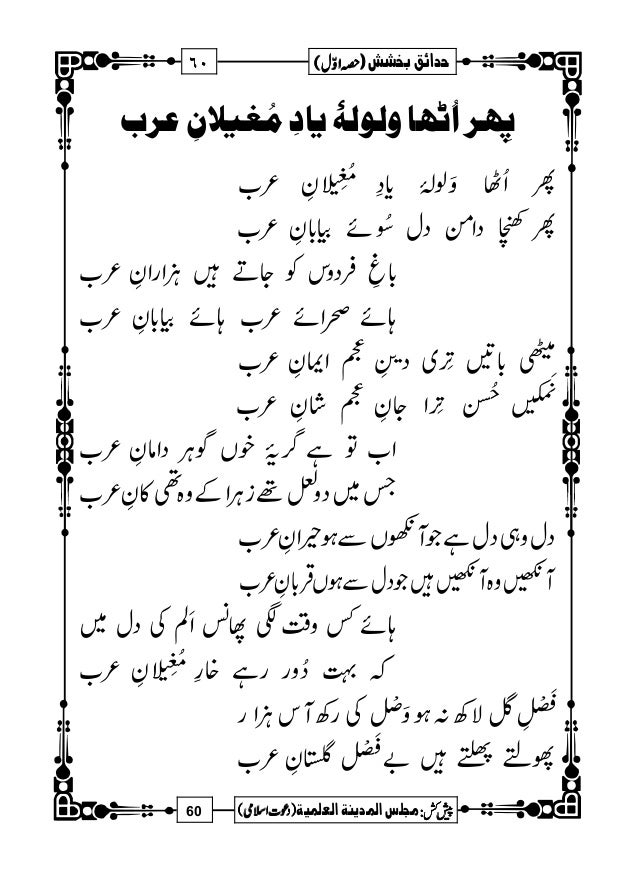 حدائق بخشش (حصہ اوّل)
٦٠
پھر اُٹھا ولولۂ یادِ مُغیلانِ عرب
پھر اُٹھا وَلولۂ یادِ مُغِیلانِ عرب
پھر کھنچا دامن دل سُوئے بیابانِ عرب
باغِ فردوس کو جاتے ہیں ہزارانِ عرب
ہائے صحرائے عرب ہائے بیابانِ عرب
مِیٹھی باتیں تِری دینِ عجم ایمانِ عرب
نَمکیں حُسن تِرا جانِ عجم شانِ عرب
اب تو ہے گریۂ خوں گوہر دامانِ عرب
جس میں دو لعل تھے زہرا کے وہ تھی کانِ عرب
دل وہی دل ہے جو آنکھوں سے ہو حیرانِ عرب
آنکھیں وہ آنکھیں ہیں جو دل سے ہوں قربانِ عرب
ہائے کس وقت لگی پھانس اَلم کی دل میں
کہ بہت دُور رہے خارِ مُغِیلانِ عرب
فَصْلِ گل لاکھ نہ ہو وَصْل کی رکھ آس ہزار
پھولتے پھلتے ہیں بے فَصْل گلستانِ عرب
پیش کش: مجلس المدینة العلمیة (دعوت اسلامی)
60